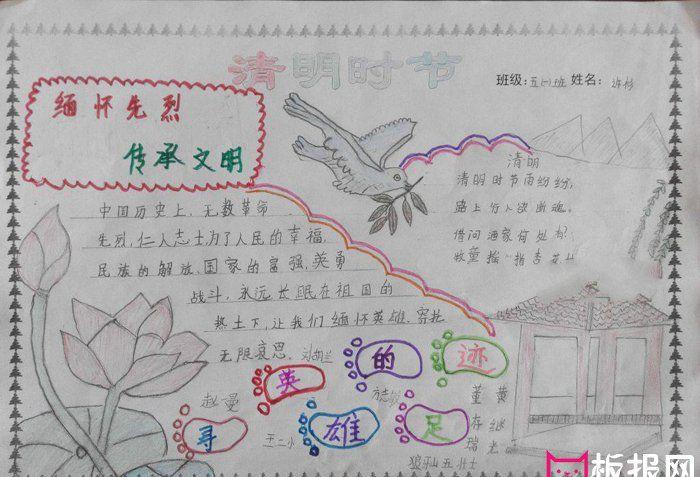 清明时节
班级:五(一)班 姓名: 许杉
缅怀先烈
传承文明
中国历史上,无数革命
先烈,仁人志士为了人民的幸福,
民族的解放,国家的富强,英勇
战斗,永远长眠在祖国的
热土下,让我们缅怀英雄,寄托
无限哀思。
清明
清明时节雨纷纷,
路上行人欲断魂。
借问酒家何处有?
牧童摇指杏花村
寻英雄的足迹
赵一曼
王二小
刘胡兰
方志敏
董存瑞
黄继光
狼牙山五壮士
板报网